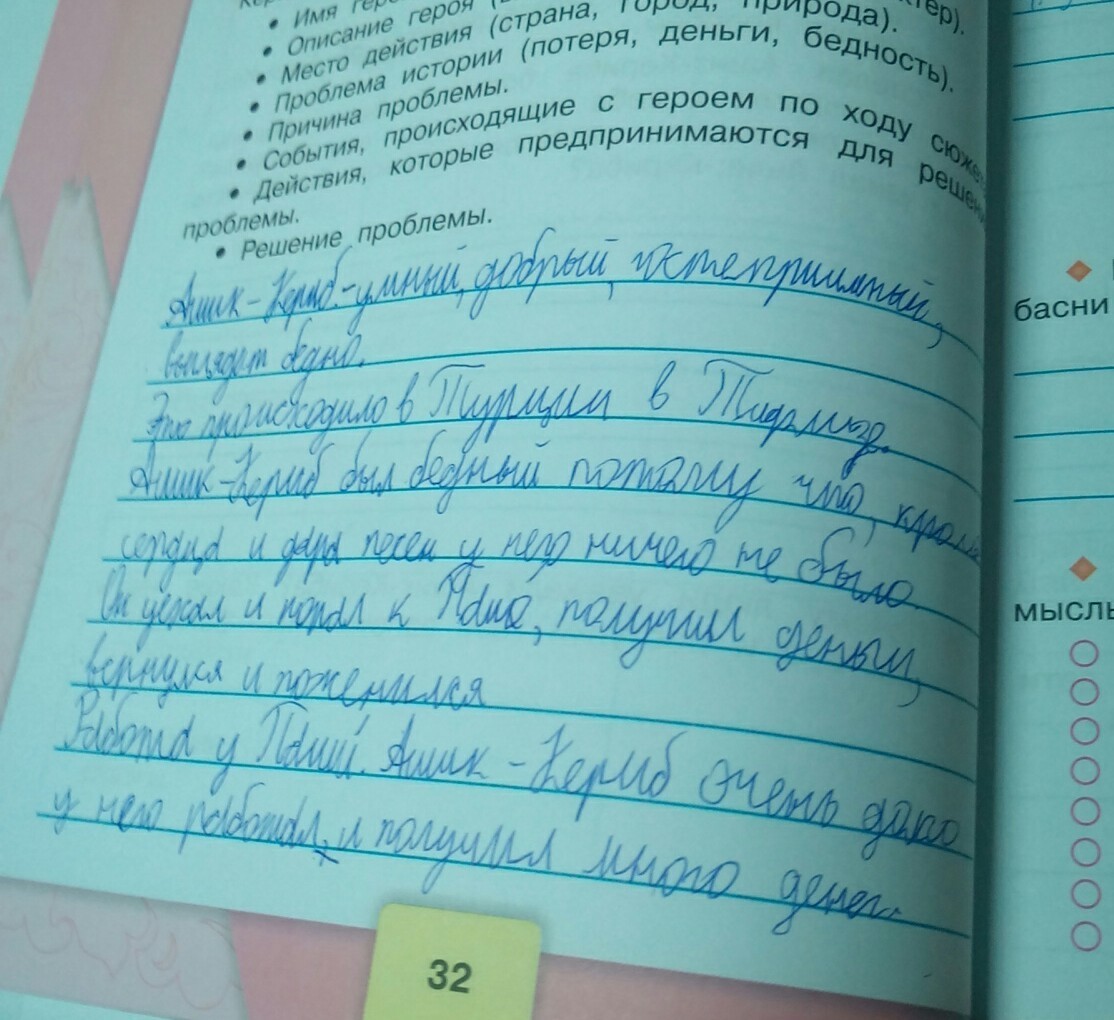 • Имя геро
• Описание героя (
тер).
• Место действия (страна, город, природа).
• Проблема истории (потеря, деньги, бедность).
• Причина проблемы.
• События, происходящие с героем по ходу сюже
• Действия, которые предпринимаются для решен
проблемы.
• Решение проблемы.
Ашик-Кериб-умный, добрый, гостеприимный,
выглядит бедно.
Это происходило в Турции в Тифлизе.
Ашик-Кериб был бедный потому что, кроме
сердца и дара песен у него ничего не было.
Он уехал и попал к Паше, получил деньги,
вернулся и поженился
Работа у Паши. Ашик-Кериб очень долго
у него работал, и получил много денег.
32
басни
мысль